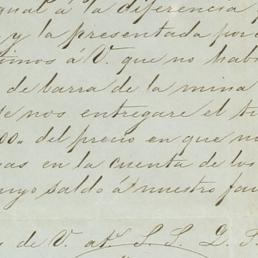 igual á la diferencia
y la presentada por
vimos á V. que no hab
de barra de la mina
se nos entregare el ti
00" del precio en que n
as en la cuenta de los
uyo saldo á nuestro fav
s de V. at S. S. Q. B.